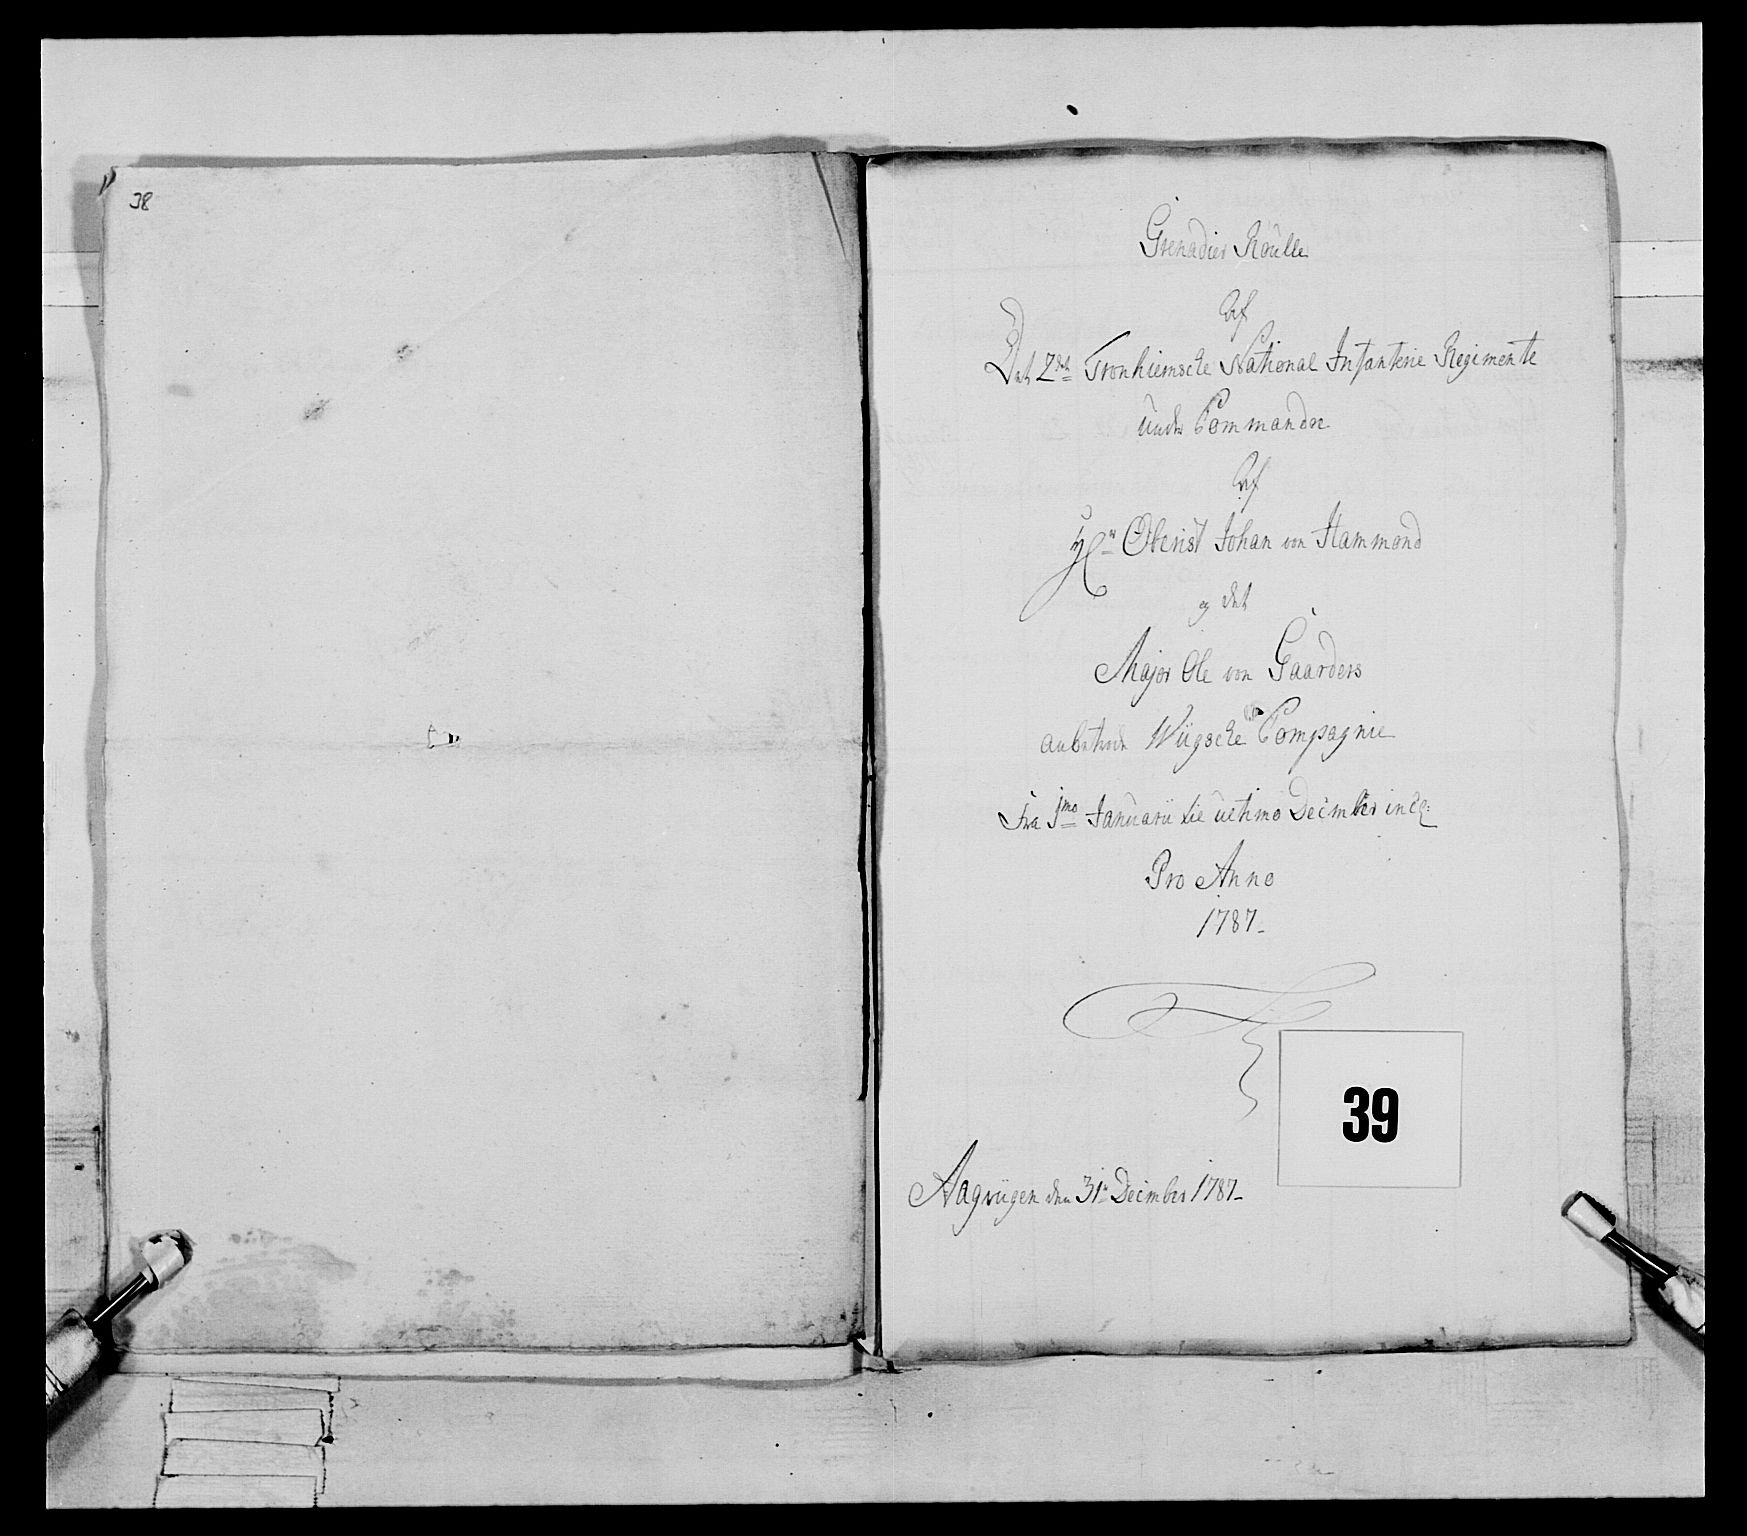 38
Grenadier Roulle
Af
Det 2det Tronhiemsche National Infanterie Regimente
under Commandoe
Af
Hr Oberist Johan von Hammond
og det
Major Ole von Gaarders
anbetroede Wügsche Compagnie
Fra 1mo Januarii til ultimo December incl:
Pro Anno
1787
39
Aagvügen den 31te December 1787